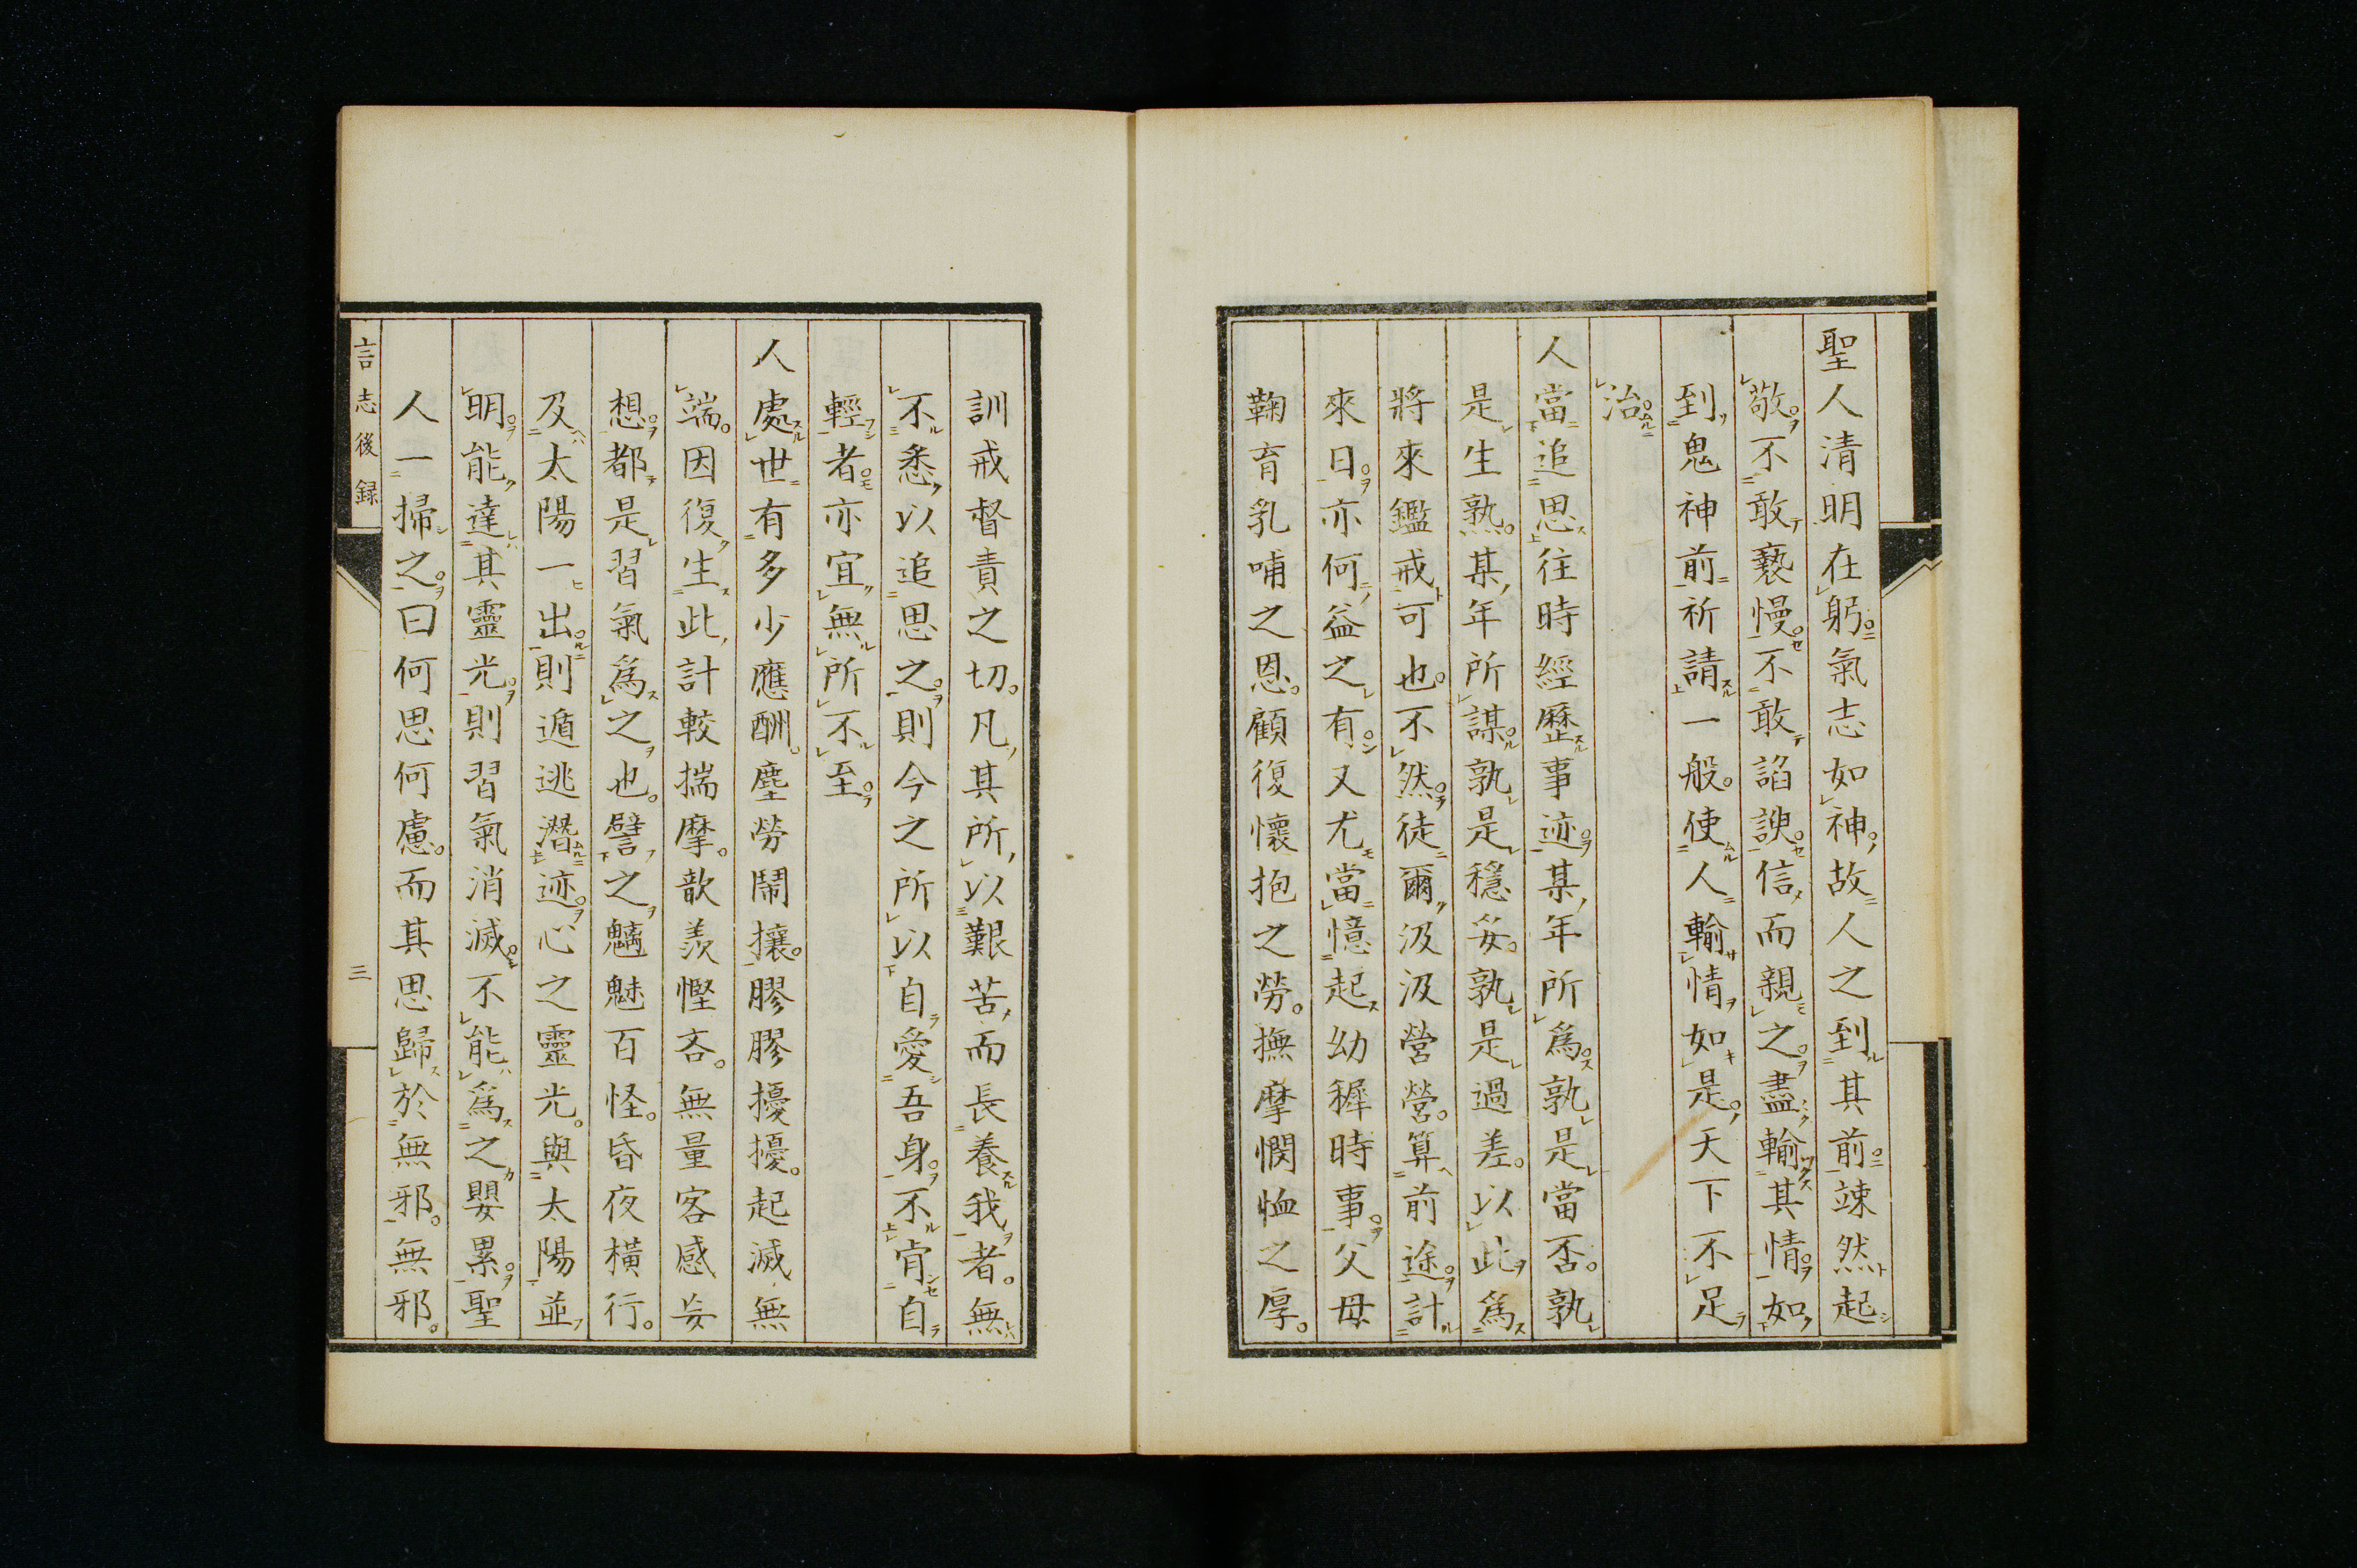 聖人清明在躬。氣志如神。故人之到其前。竦然起
敬。不敢褻慢。不敢諂諛。信而親之。盡輸其情。如
到鬼神前祈請一般。使人輸情如是。天下不足
治。
人當追思往時經歷事迹。某年所爲。孰是當否。孰
是生熟。某年所謀。孰是穩妥。孰是過差。以此爲
將來鑑戒可也。不然。徒爾汲汲營營。算前途。計
來日。亦何益之有。又尤當憶起幼穉時事。父母
鞠育乳哺之恩。顧復懷抱之勞。撫摩憫恤之厚。
訓戒督責之切。凡其所以艱苦而長養我者。無
不悉以追思之。則今之所以自愛吾身。不肯自
輕者。亦宜無所不至。
人處世有多少應酬。塵勞鬧攘。膠膠擾擾。起滅無
端。因復生此計較揣摩。歆羨慳吝。無量客感妄
想。都是習氣爲之也。譬之魑魅百怪。昏夜橫行。
及太陽一出。則遁逃潛迹。心之靈光。與太陽並
明。能達其靈光。則習氣消滅。不能爲之嬰累。聖
人一掃之。曰何思何慮。而其思歸於無邪。無邪。
言志後録
三